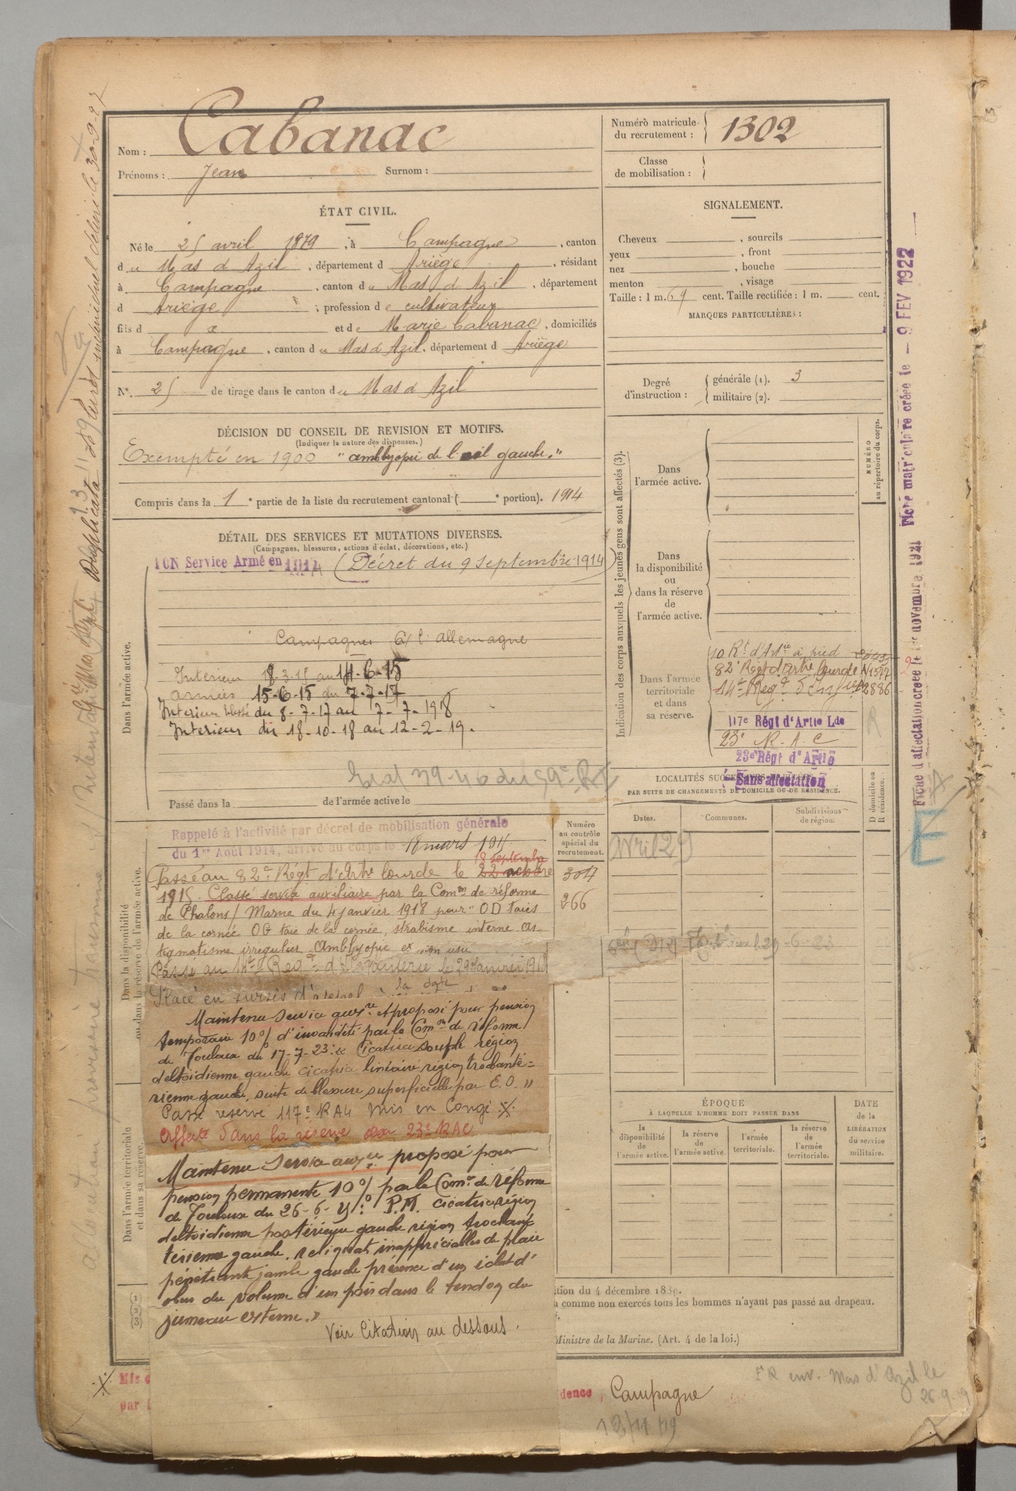 Nom : Cabanac
Prénoms : Jean Surnom :
Numéro matricule du recrutement : 1302
Classe de mobilisation :
ÉTAT CIVIL.
Né le 25 avril 1879, à Campagne, canton
du Mas d'Azil, département d Ariège, résidant
à Campagne, canton du Mas d'Azil, département
d Ariège, profession de cultivateur
fils d et de Marie Cabanac, domiciliés
à Campagne, canton du Mas d'Azil, département d Ariège
N° 25 de tirage dans le canton du Mas d'Azil
SIGNALEMENT.
Cheveux , sourcils
yeux , front
nez , bouche
menton , visage
Taille : 1 m. 69 cent. Taille rectifiée : 1 m. cent.
MARQUES PARTICULIÈRES :
Degré d'instruction : générale (1). 3
militaire (2).
DÉCISION DU CONSEIL DE REVISION ET MOTIFS.
(Indiquer la nature des dispenses.)
Exempté en 1900 "amblyopie de l'œil gauche."
Compris dans la 1e partie de la liste du recrutement cantonal ( e portion). 1914
DÉTAIL DES SERVICES ET MUTATIONS DIVERSES.
(Campagnes, blessures, actions d'éclat, décorations, etc.)
Service Armé en 1914 (Décret du 9 septembre 1914)
Campagnes c/ l'allemagne
Interieur 8-3-15 au 14-6-15
armées 15-6-15 au 7-7-17
Interieur blessé du 8-7-17 au 7-7-198
Interieur du 18-10-18 au 12-2-19.
Passé dans la de l'armée active le
Dans l'armée active.
Dans la disponibilité ou dans la réserve de l'armée active.
Dans l'armée territoriale et dans sa réserve.
Rappelé à l'activité par décret de mobilisation générale
du 1er Août 1914, arrivé au corps le 8 mars 1915
Passé au 82e Régt d'Artie lourde le 18 septembre
1915. Classé service auxiliaire par la Comon de réforme
de Chalons/Marne du 4 janvier 1918 pour "OD taies
de la cornée OG taie de la cornée, strabisme interne as-
tigmatisme irregulier Amblyopie ex non usu
Passé au 14e Regt d'Infanterie le 23 Janvier 1918
Placé en sursis d'appel à
Maintenu Service auxre et proposé pour pension
temporaire 10% d'invalidité par la Comon de réforme
de Toulouse du 17-7-23 : Cicatrice souple région
deltoïdienne gauche cicatrice linéaire région trochanté-
rienne gauche, suite de blessure superficielle par E.O."
Passé réserve 117e RA4 mis en Congé X.
Affecté dans la réserve 23e RAC
Maintenu Service auxre proposé pour
pension permanente 10% par la Comon de réforme
de Toulouse du 26-6- P.M. cicatrice région
deltoïdienne postérieure gauche région trochan-
térienne gauche. reliquat inappréciables de plaie
pénétrante jambe gauche présence d'un éclat d'
obus du volume d'un pois dans le tendon du
jumeau externe."
Voir Citation au dessous.
Numéro au contrôle spécial du recrutement.
304
266
Indication des corps auxquels les jeunes gens sont affectés (3).
Dans l'armée active.
Dans la disponibilité ou dans la réserve de l'armée active.
Dans l'armée territoriale et dans sa réserve.
NUMÉRO au répertoire du corps.
10 Rt d'Artie à pied
82e Régt d'Artie lourde
14e Regt d'Infie 2886
117e Régt d'Artie Lde
23e R.A.C
23e Régt d'Artie
Sans affectation
LOCALITÉS
PAR SUITE DE CHANGEMENTS DE DOMICILE OU DE RÉSIDENCE.
Dates. Communes. Subdivisions de région. D domicile ou R résidence.
Avril 29
ÉPOQUE
À LAQUELLE L'HOMME DOIT PASSER DANS
la disponibilité de l'armée active. la réserve de l'armée active. l'armée territoriale. la réserve de l'armée territoriale.
DATE de la LIBÉRATION du service militaire.
du 4 décembre 1889.
comme non exercés tous les hommes n'ayant pas passé au drapeau.
Ministre de la Marine. (Art. 4 de la loi.)
dence, Campagne
12/11/19
env. Mas d'Azil le
26-9-19
Fiche matriculaire créée le 9 FEV 1922
Fiche d'affectation créée le 1er novembre 1921
E